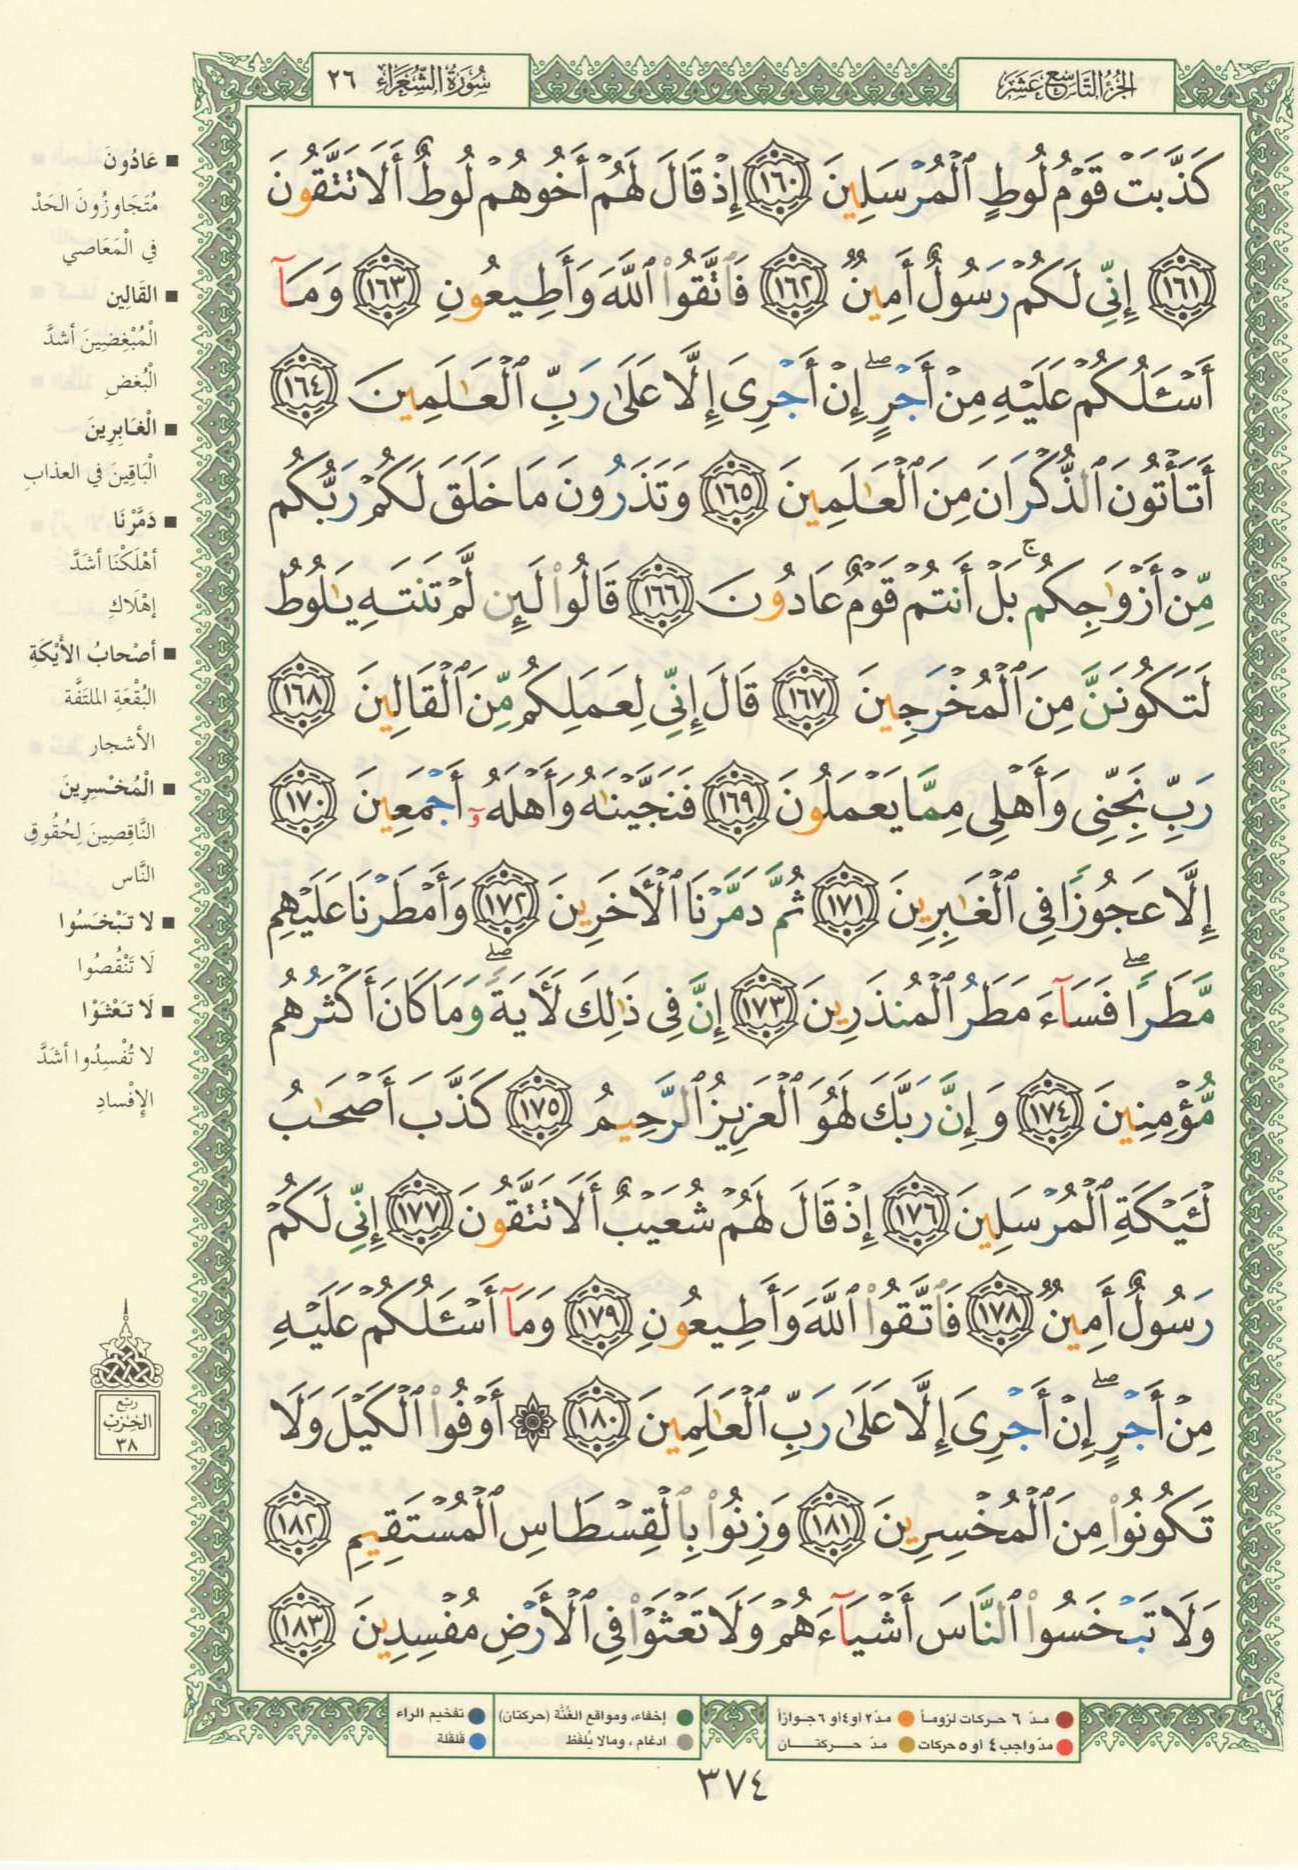 الجزء التاسع عشر
سورة الشعراء ٢٦
كَذَّبَتْ قَوْمُ لُوطٍ ٱلْمُرْسَلِينَ ١٦٠ إِذْ قَالَ لَهُمْ أَخُوهُمْ لُوطٌ أَلَا تَتَّقُونَ
١٦١ إِنِّى لَكُمْ رَسُولٌ أَمِينٌ ١٦٢ فَٱتَّقُوا۟ ٱللَّهَ وَأَطِيعُونِ ١٦٣ وَمَآ
أَسْـَٔلُكُمْ عَلَيْهِ مِنْ أَجْرٍ ۖ إِنْ أَجْرِىَ إِلَّا عَلَىٰ رَبِّ ٱلْعَـٰلَمِينَ ١٦٤
أَتَأْتُونَ ٱلذُّكْرَانَ مِنَ ٱلْعَـٰلَمِينَ ١٦٥ وَتَذَرُونَ مَا خَلَقَ لَكُمْ رَبُّكُم
مِّنْ أَزْوَٰجِكُم ۚ بَلْ أَنتُمْ قَوْمٌ عَادُونَ ١٦٦ قَالُوا۟ لَئِن لَّمْ تَنتَهِ يَـٰلُوطُ
لَتَكُونَنَّ مِنَ ٱلْمُخْرَجِينَ ١٦٧ قَالَ إِنِّى لِعَمَلِكُم مِّنَ ٱلْقَالِينَ ١٦٨
رَبِّ نَجِّنِى وَأَهْلِى مِمَّا يَعْمَلُونَ ١٦٩ فَنَجَّيْنَـٰهُ وَأَهْلَهُۥٓ أَجْمَعِينَ ١٧٠
إِلَّا عَجُوزًا فِى ٱلْغَـٰبِرِينَ ١٧١ ثُمَّ دَمَّرْنَا ٱلْأَخَرِينَ ١٧٢ وَأَمْطَرْنَا عَلَيْهِم
مَّطَرًا ۖ فَسَآءَ مَطَرُ ٱلْمُنذَرِينَ ١٧٣ إِنَّ فِى ذَٰلِكَ لَأَيَةً ۖ وَمَا كَانَ أَكْثَرُهُم
مُّؤْمِنِينَ ١٧٤ وَإِنَّ رَبَّكَ لَهُوَ ٱلْعَزِيزُ ٱلرَّحِيمُ ١٧٥ كَذَّبَ أَصْحَـٰبُ
لْـَٔيْكَةِ ٱلْمُرْسَلِينَ ١٧٦ إِذْ قَالَ لَهُمْ شُعَيْبٌ أَلَا تَتَّقُونَ ١٧٧ إِنِّى لَكُمْ
رَسُولٌ أَمِينٌ ١٧٨ فَٱتَّقُوا۟ ٱللَّهَ وَأَطِيعُونِ ١٧٩ وَمَآ أَسْـَٔلُكُمْ عَلَيْهِ
مِنْ أَجْرٍ ۖ إِنْ أَجْرِىَ إِلَّا عَلَىٰ رَبِّ ٱلْعَـٰلَمِينَ ١٨٠ ۞ أَوْفُوا۟ ٱلْكَيْلَ وَلَا
تَكُونُوا۟ مِنَ ٱلْمُخْسِرِينَ ١٨١ وَزِنُوا۟ بِٱلْقِسْطَاسِ ٱلْمُسْتَقِيمِ ١٨٢
وَلَا تَبْخَسُوا۟ ٱلنَّاسَ أَشْيَآءَهُمْ وَلَا تَعْثَوْا۟ فِى ٱلْأَرْضِ مُفْسِدِينَ ١٨٣
■ عَادُونَ
مُتَجَاوِزُونَ الحَدّ
في الْمَعَاصي
■ القَالِين
الْمُبْغِضِينَ أشدَّ
الْبُغضِ
■ الْغَابِرِينَ
الْبَاقِينَ في العذابِ
■ دَمَّرْنَا
أهْلَكْنَا أشَدَّ
إهْلَاكِ
■ أصْحابُ الأَيْكَةِ
البُقْعَةِ الملتَفَّة
الأشجار
■ الْمُخْسِرِينَ
النَّاقِصِينَ لِحُقُوقِ
النَّاس
■ لا تَبْخَسُوا
لَا تَنْقُصُوا
■ لَا تَعْثَوْا
لا تُفْسِدُوا أشَدَّ
الإفْسادِ
ربع
الحزب
٣٨
مدّ ٦ حركات لزوماً
مدّ ٢ او ٤ او ٦ جوازاً
إخفاء، ومواقع الغُنَّة (حركتان)
تفخيم الراء
مدّ واجب ٤ او ٥ حركات
مدّ حركتان
ادغام، ومالا يُلفَظ
قلقلة
٣٧٤